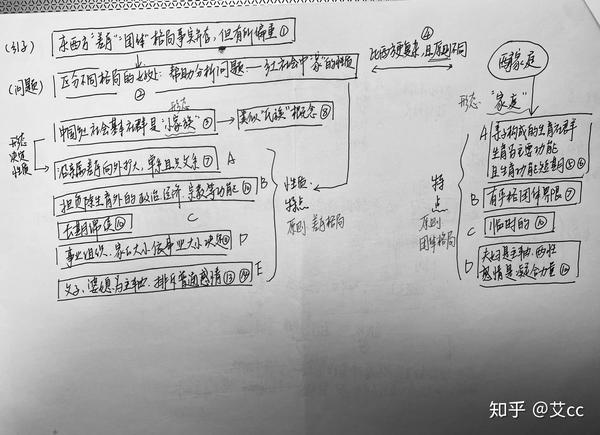 (引子) 东西方“差序”“团体”格局事实并存,但有所偏重①
(问题) 区分不同格局的好处:帮助分析问题——红社会中“家”的性质
②
④
比西方更复杂,且原则不同
西家庭
形态
形态 “家庭”
形态决定性质
中国乡土社会基本社群是“小家族”⑤
类似“氏族”概念⑧
沿亲属差序向外扩大,单系且父系⑦ A
担负除生育外的政治、经济、宗教等功能⑩ B
长期绵续⑩ C
事业组织、家的大小依事业大小决定 D
父子、婆媳为主轴,排斥普通感情⑬⑭ E
性质
特点
原则:差序格局
特点
原则
团体格局
A 亲子构成的生育社群
生育为主要功能
且生育功能短期⑤⑥
B 有严格团体界限
C 临时的
D 夫妇是主轴,两性
感情是凝合力量
知乎 @艾cc